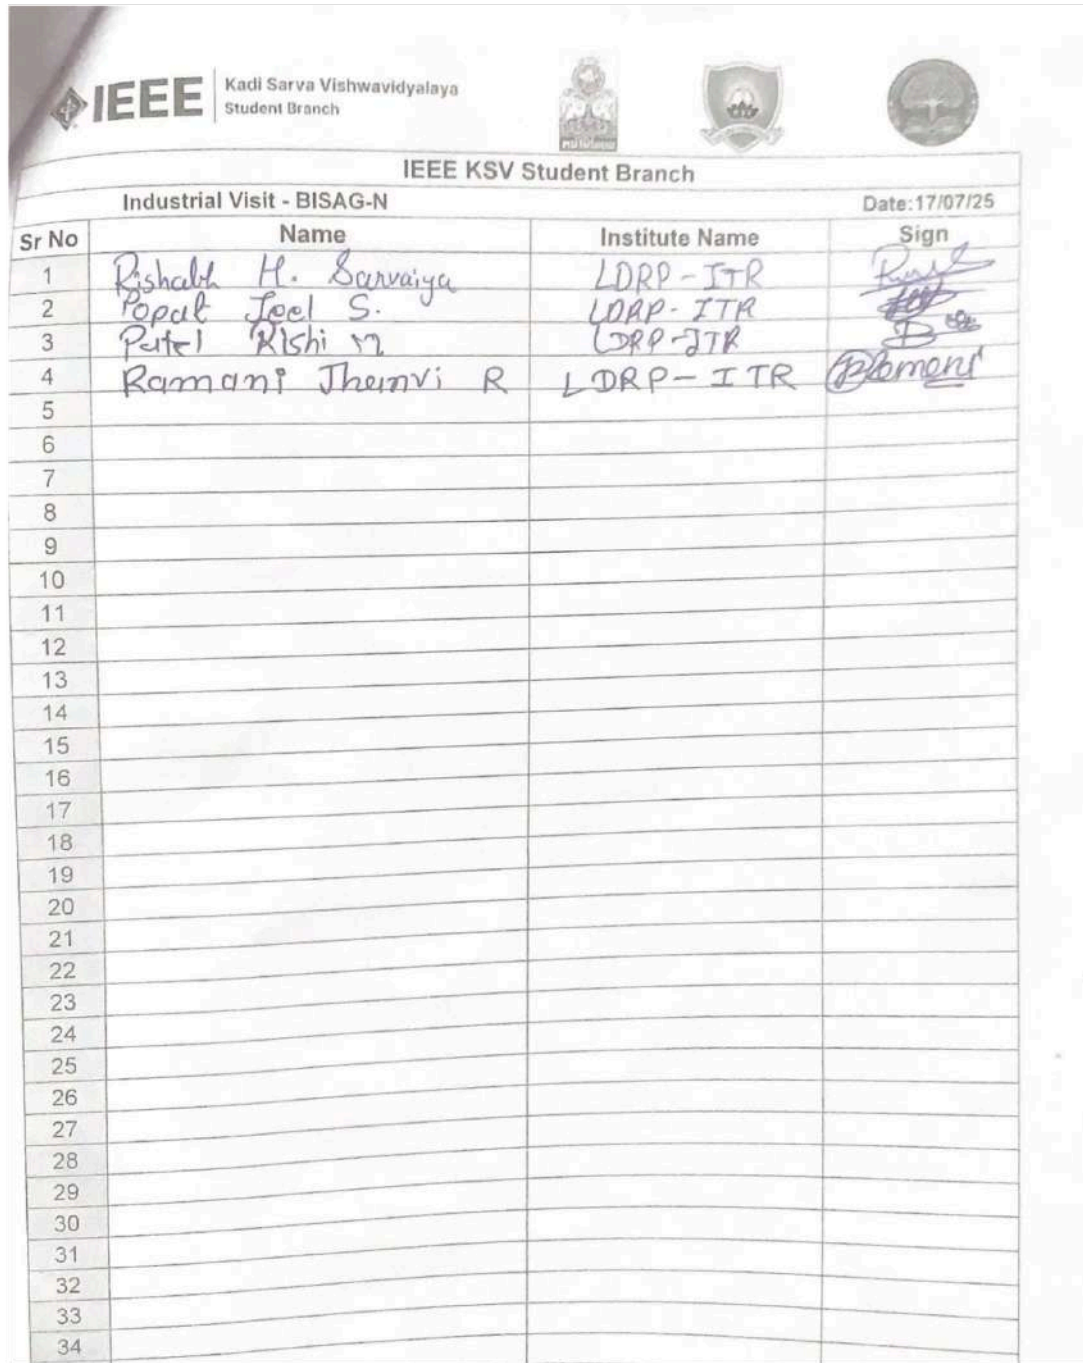 IEEE Kadi Sarva Vishwavidyalaya
Student Branch
IEEE KSV Student Branch
Industrial Visit - BISAG-N Date:17/07/25
Sr No Name Institute Name Sign
1 Rishabh H. Sarvaiya LDRP-ITR
2 Popat Jeel S. LDRP-ITR
3 Patel Rishi M LDRP-ITR
4 Ramani Jhanvi R LDRP-ITR
5
6
7
8
9
10
11
12
13
14
15
16
17
18
19
20
21
22
23
24
25
26
27
28
29
30
31
32
33
34